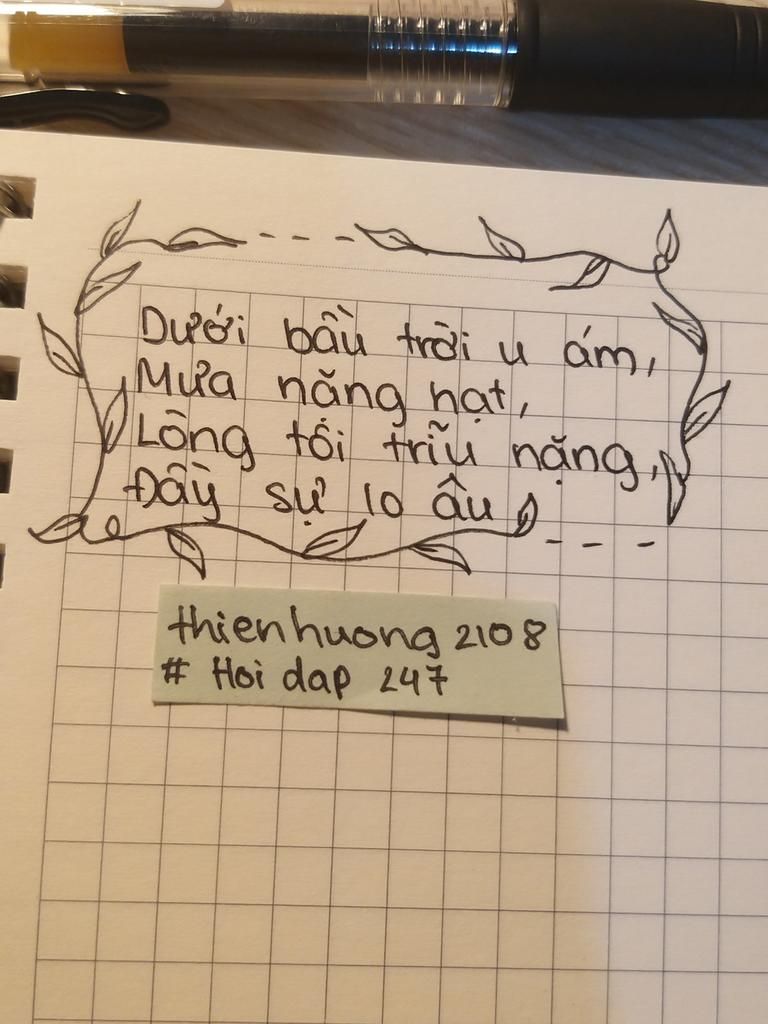 Dưới bầu trời u ám,
Mưa năng hạt,
Lòng tôi trĩu nặng,
Đầy sự lo âu
thienhuong 2108
# Hoi dap 247